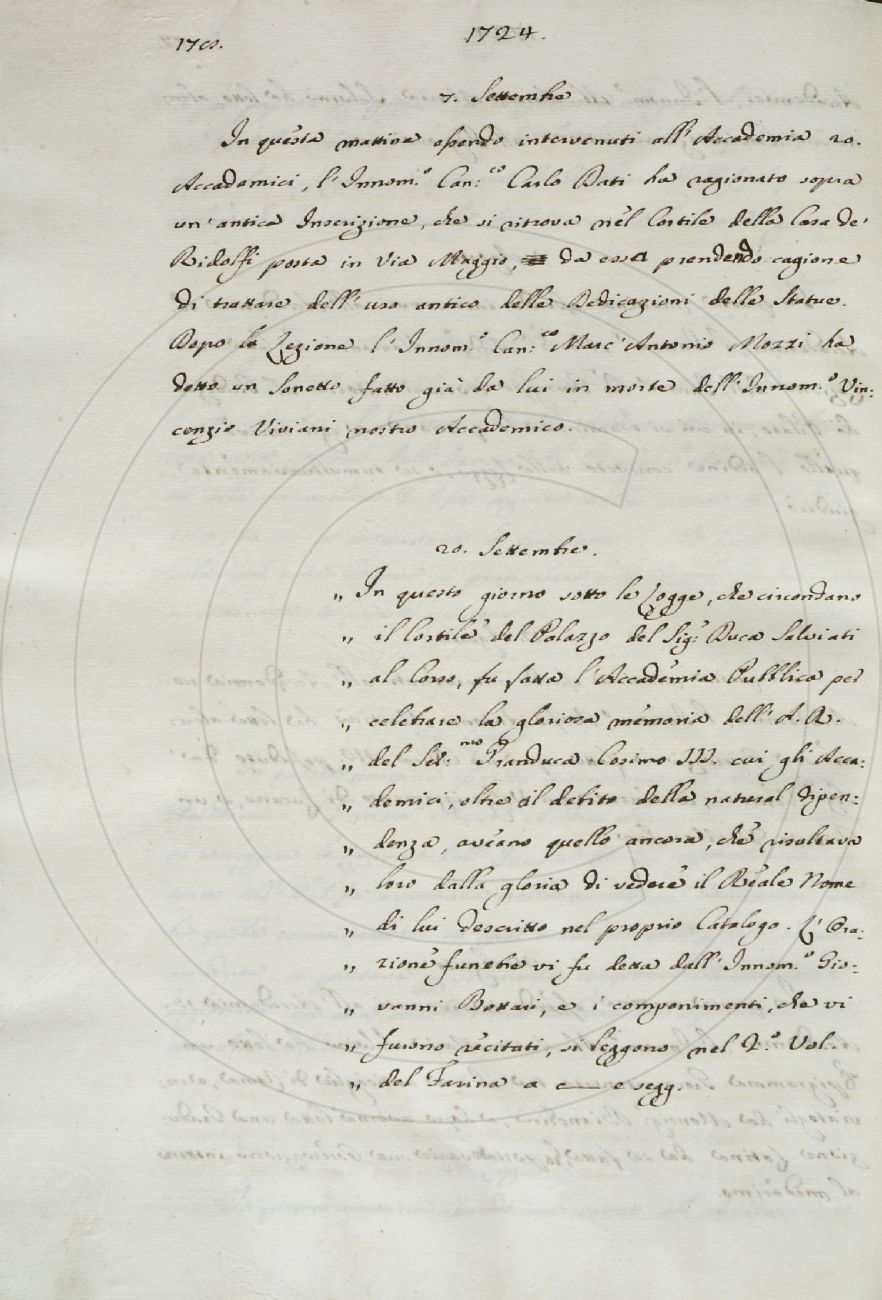 1724.
7. Settembre
In questa mattina essendo intervenuti all'Accademia 20.
Accademici, l'Innom.º Can:co Carlo Dati ha ragionato sopra
un'antica Inscrizione, che si ritrova nel Cortile della Casa de'
Ridolfi posta in Via Maggio, da essa prendendo cagione
di trattare dell'uso antico delle Dedicazioni delle Statue.
Dopo la Lezione l'Innom.º Can:co Marc'Antonio Mozzi ha
detto un Sonetto fatto già da lui in morte dell'Innom.º Vin:
cenzio Viviani nostro Accademico.
20. Settembre.
„ In questo giorno sotto le Logge, che circondano
„ il Cortile del Palazzo del Sig.r Duca Salviati
„ al Corso, fu fatta l'Accademia Pubblica per
„ celebrare la gloriosa memoria dell'A. R.
„ del Ser:mo Granduca Cosimo III. cui gli Acca:
„ demici, oltre il debito della natural dipen:
„ denza, aveano quello ancora, che risultava
„ loro dalla gloria di vedere il Reale Nome
„ di lui descritto nel proprio Catalogo. L'Ora:
„ zione funebre vi fu detta dall'Innom.º Gio:
„ vanni Bottari, e i componimenti, che vi
„ furono recitati, si leggono nel 2.º Vol.
„ del Farina a c— e segg.